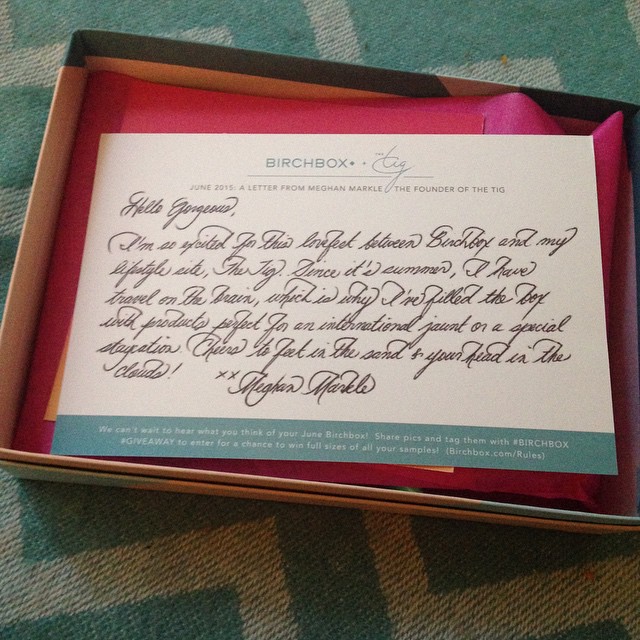 BIRCHBOX + THE tig
JUNE 2015: A LETTER FROM MEGHAN MARKLE, THE FOUNDER OF THE TIG
Hello Gorgeous,
I'm so excited for this lovefest between Birchbox and my
lifestyle site, The Tig. Since it's summer, I have
travel on the brain, which is why I've filled the box
with products perfect for an international jaunt or a special
staycation. Cheers to feet in the sand & your head in the
clouds! xx Meghan Markle
We can't wait to hear what you think of your June Birchbox! Share pics and tag them with #BIRCHBOX
#GIVEAWAY to enter for a chance to win full sizes of all your samples! (Birchbox.com/Rules)